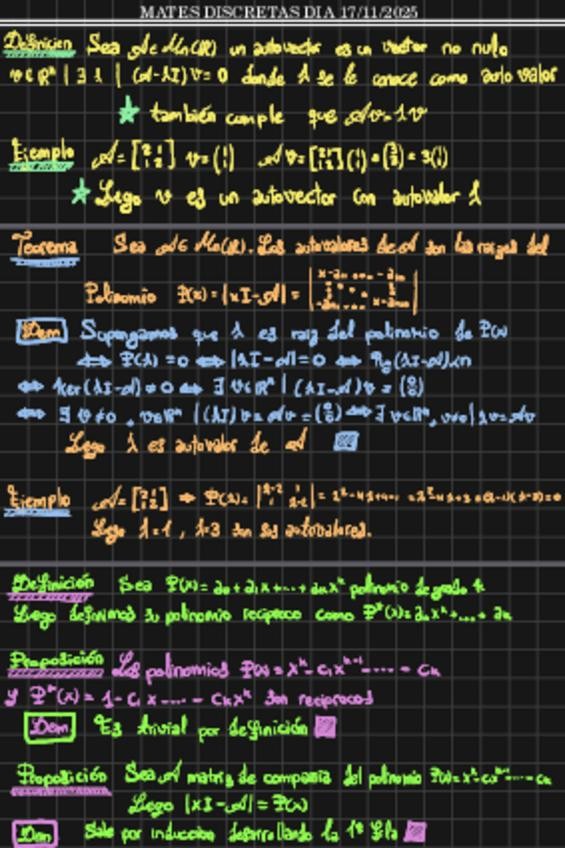 MATES DISCRETAS DIA 17/11/2025
Definición Sea A∈Mn(R) un autovector es un vector no nulo
v∈Rⁿ | ∃ λ | (A-λI)v=0 donde λ se le conoce como autovalor
★ también cumple que Av=λv
Ejemplo A=[2 1; 1 2] v=(1 1) Av=[2 1; 1 2](1 1)=(3 3)=3(1 1)
★ Lego v es un autovector con autovalor λ
Teorema Sea A∈Mn(R). Los autovalores de A son las raízes del
Polinomio P(x)=|xI-A|=
Dem Supongamos que λ es raíz del polinomio de P(x)
⟺ P(λ)=0 ⟺ |λI-A|=0 ⟺ Rg(λI-A)<n
⟺ Ker(λI-A)≠0 ⟺ ∃ v∈Rⁿ | (λI-A)v=
⟺ ∃ v≠0, v∈Rⁿ | (λI)v=Av= ⟺ ∃ v∈Rⁿ, v≠0 | λv=Av
Lego λ es autovalor de A
Ejemplo A=[2 1; 1 2] ⇒ P(x)=
Lego λ=1, λ=3 son los autovalores.
Definición Sea P(x)=a₀+a₁x+...+aₖxᵏ polinomio de grado k
Luego definimos su polinomio recíproco como P*(x)=a₀xᵏ+...+aₖ
Proposición Los polinomios P(x)=xᵏ-c₁xᵏ⁻¹-...-cₖ
y P*(x)=1-c₁x-...-cₖxᵏ son recíprocos
Dem Es trivial por definición
Proposición Sea A matriz de compañia del polinomio P(x)=xᵏ-c₁xᵏ⁻¹-...-cₖ
Lego |xI-A|=P(x)
Dem Sale por inducción desarrollando la 1ª fila